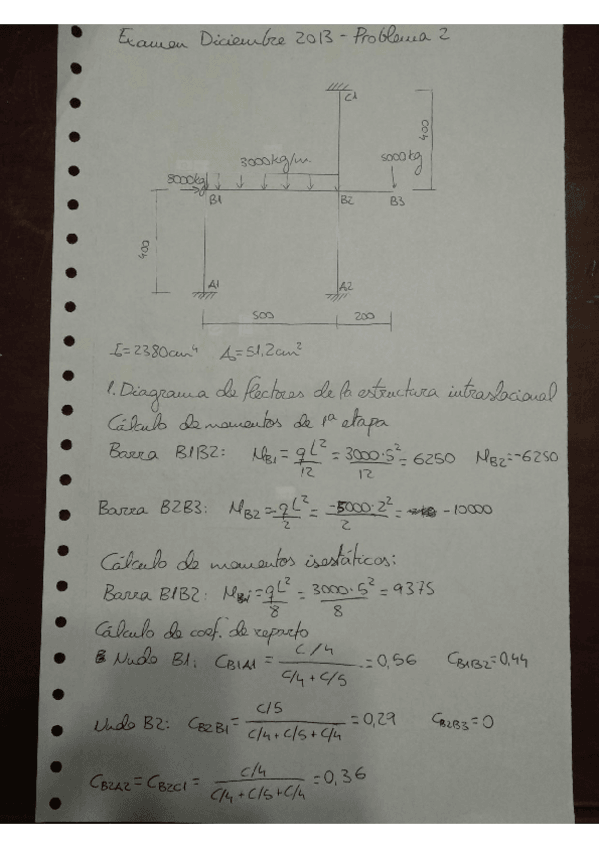 Examen Diciembre 2013 - Problema 2
C1
400
3000kg/m
5000kg
8000kg
B1
B2
B3
400
A1
A2
500
200
I₀=2380cm⁴ A₀=51,2cm²
1. Diagrama de flectores de la estructura intraslacional
Cálculo de momentos de 1ª etapa
Barra B1B2: M_B1 = qL²/12 = 3000·5²/12 = 6250 M_B2=-6250
Barra B2B3: M_B2 = -qL²/2 = -5000·2²/2 = -10000
Cálculo de momentos isostáticos:
Barra B1B2: M = qL²/8 = 3000·5²/8 = 9375
Cálculo de coef. de reparto
Nudo B1: C_B1A1 = C/4 / (C/4 + C/5) = 0,56 C_B1B2=0,44
Nudo B2: C_B2B1 = C/5 / (C/4+C/5+C/4) = 0,29 C_B2B3=0
C_B2A2 = C_B2C1 = C/4 / (C/4+C/5+C/4) = 0,36